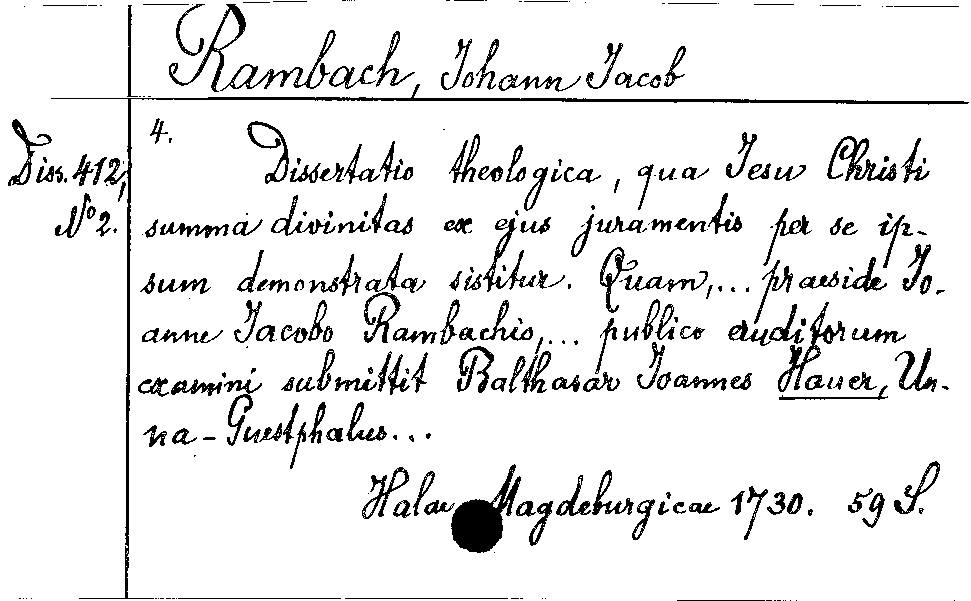 Rambach, Johann Jacob
4.
Diss. 412,
No 2.
Dissertatio theologica, qua Jesu Christi
summa divinitas ex ejus juramentis per se ip-
sum demonstrata sistitur. Quam,... praeside Jo-
anne Jacobo Rambachio,... publico eruditorum
examini submittit Balthasar Joannes Hauer, Un-
na-Guestphalus...
Halae Magdeburgicae 1730. 59 S.